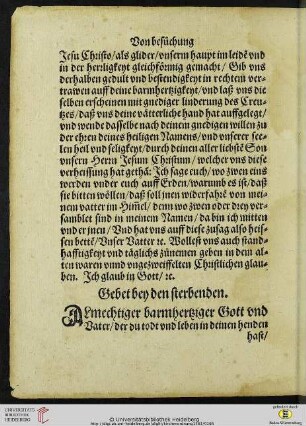 Von besuchung
Jesu Christo/ als glider/ vnserm haupt im leidē vnd
in der herrligkeyt gleichförmig gemacht/ Gib vns
derhalben gedult vnd bestendigkeyt in rechtem ver-
trawen auff deine barmhertzigkeyt/ vnd laß vns die
selben erscheinen mit gnediger linderung des Creu-
tzes/ daß vns deine vätterliche hand hat auffgelegt/
vnd wende dasselbe nach deinem gnedigen willen/ zu
der ehren deines heiligen Namens/ vnd vnserer see-
len heil vnd seligkeyt/ durch deinen aller liebstē Son
vnsern Herrn Jesum Christum/ welcher vns diese
verheissung hat gethā: Ich sage euch/ wo zwen eins
werden vnder euch auff Erden/ warumb es ist/ daß
sie bitten wöllen/ daß soll jnen widerfahrē von mei-
nem vatter im Himel/ denn wo zwen oder drey ver-
samblet sind in meinem Namen/ da bin ich mitten
vnder jnen/ Vnd hat vns auff diese zusag also heis-
sen bettē/ Vnser Vatter ꝛc. Wollest vns auch stand-
hafftigkeyt vnd täglichs zunemen geben in dem al-
ten waren vnnd vngezweiffelten Christlichen glau-
ben. Ich glaub in Gott/ ꝛc.
Gebet bey den sterbenden.
ALmechtiger barmhertziger Gott vnd
Vater/ der du todt vnd leben in deinen henden
hast/
UNIVERSITÄTS-
BIBLIOTHEK
HEIDELBERG
© Universitätsbibliothek Heidelberg